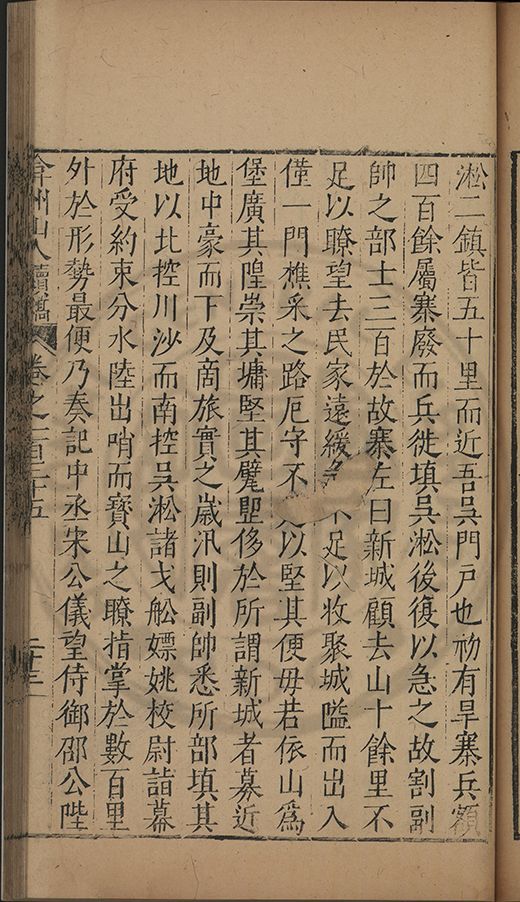 淞二鎮皆五十里而近吾吳門戶也初有旱寨兵額
四百餘屬寨廢而兵徙填吳淞後復以急之故割副
帥之部士三百於故寨左曰新城顧去山十餘里不
足以瞭望去民家遠緩急不足以收聚城隘而出入
僅一門樵采之路厄守不足以堅其便毋若依山為
堡廣其隍崇其墉堅其甓堲侈於所謂新城者募近
地中豪而下及商旅實之歲汛則副帥悉所部填其
地以北控川沙而南控吳淞諸戈舩嫖姚校尉詣幕
府受約束分水陸出哨而寶山之瞭指掌於數百里
外於形勢最便乃奏記中丞宋公儀望侍御邵公陛
弇州山人續稿 卷之一百三十五 二十三